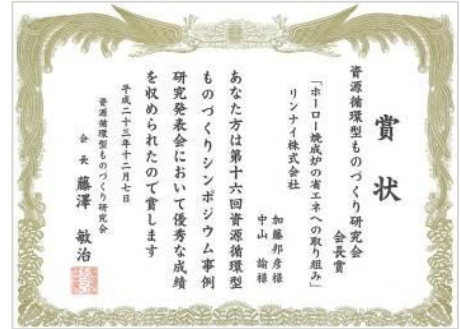 賞状
資源循環型ものづくり研究会
会長賞
「ホーロー焼成炉の省エネへの取り組み」
リンナイ株式会社
加藤邦彦様
中山 諭様
あなた方は第十六回資源循環型
ものづくりシンポジウム事例
研究発表会において優秀な成績
を収められたので賞します
平成二十三年十二月七日
資源循環型ものづくり研究会
会長 藤澤 敏治